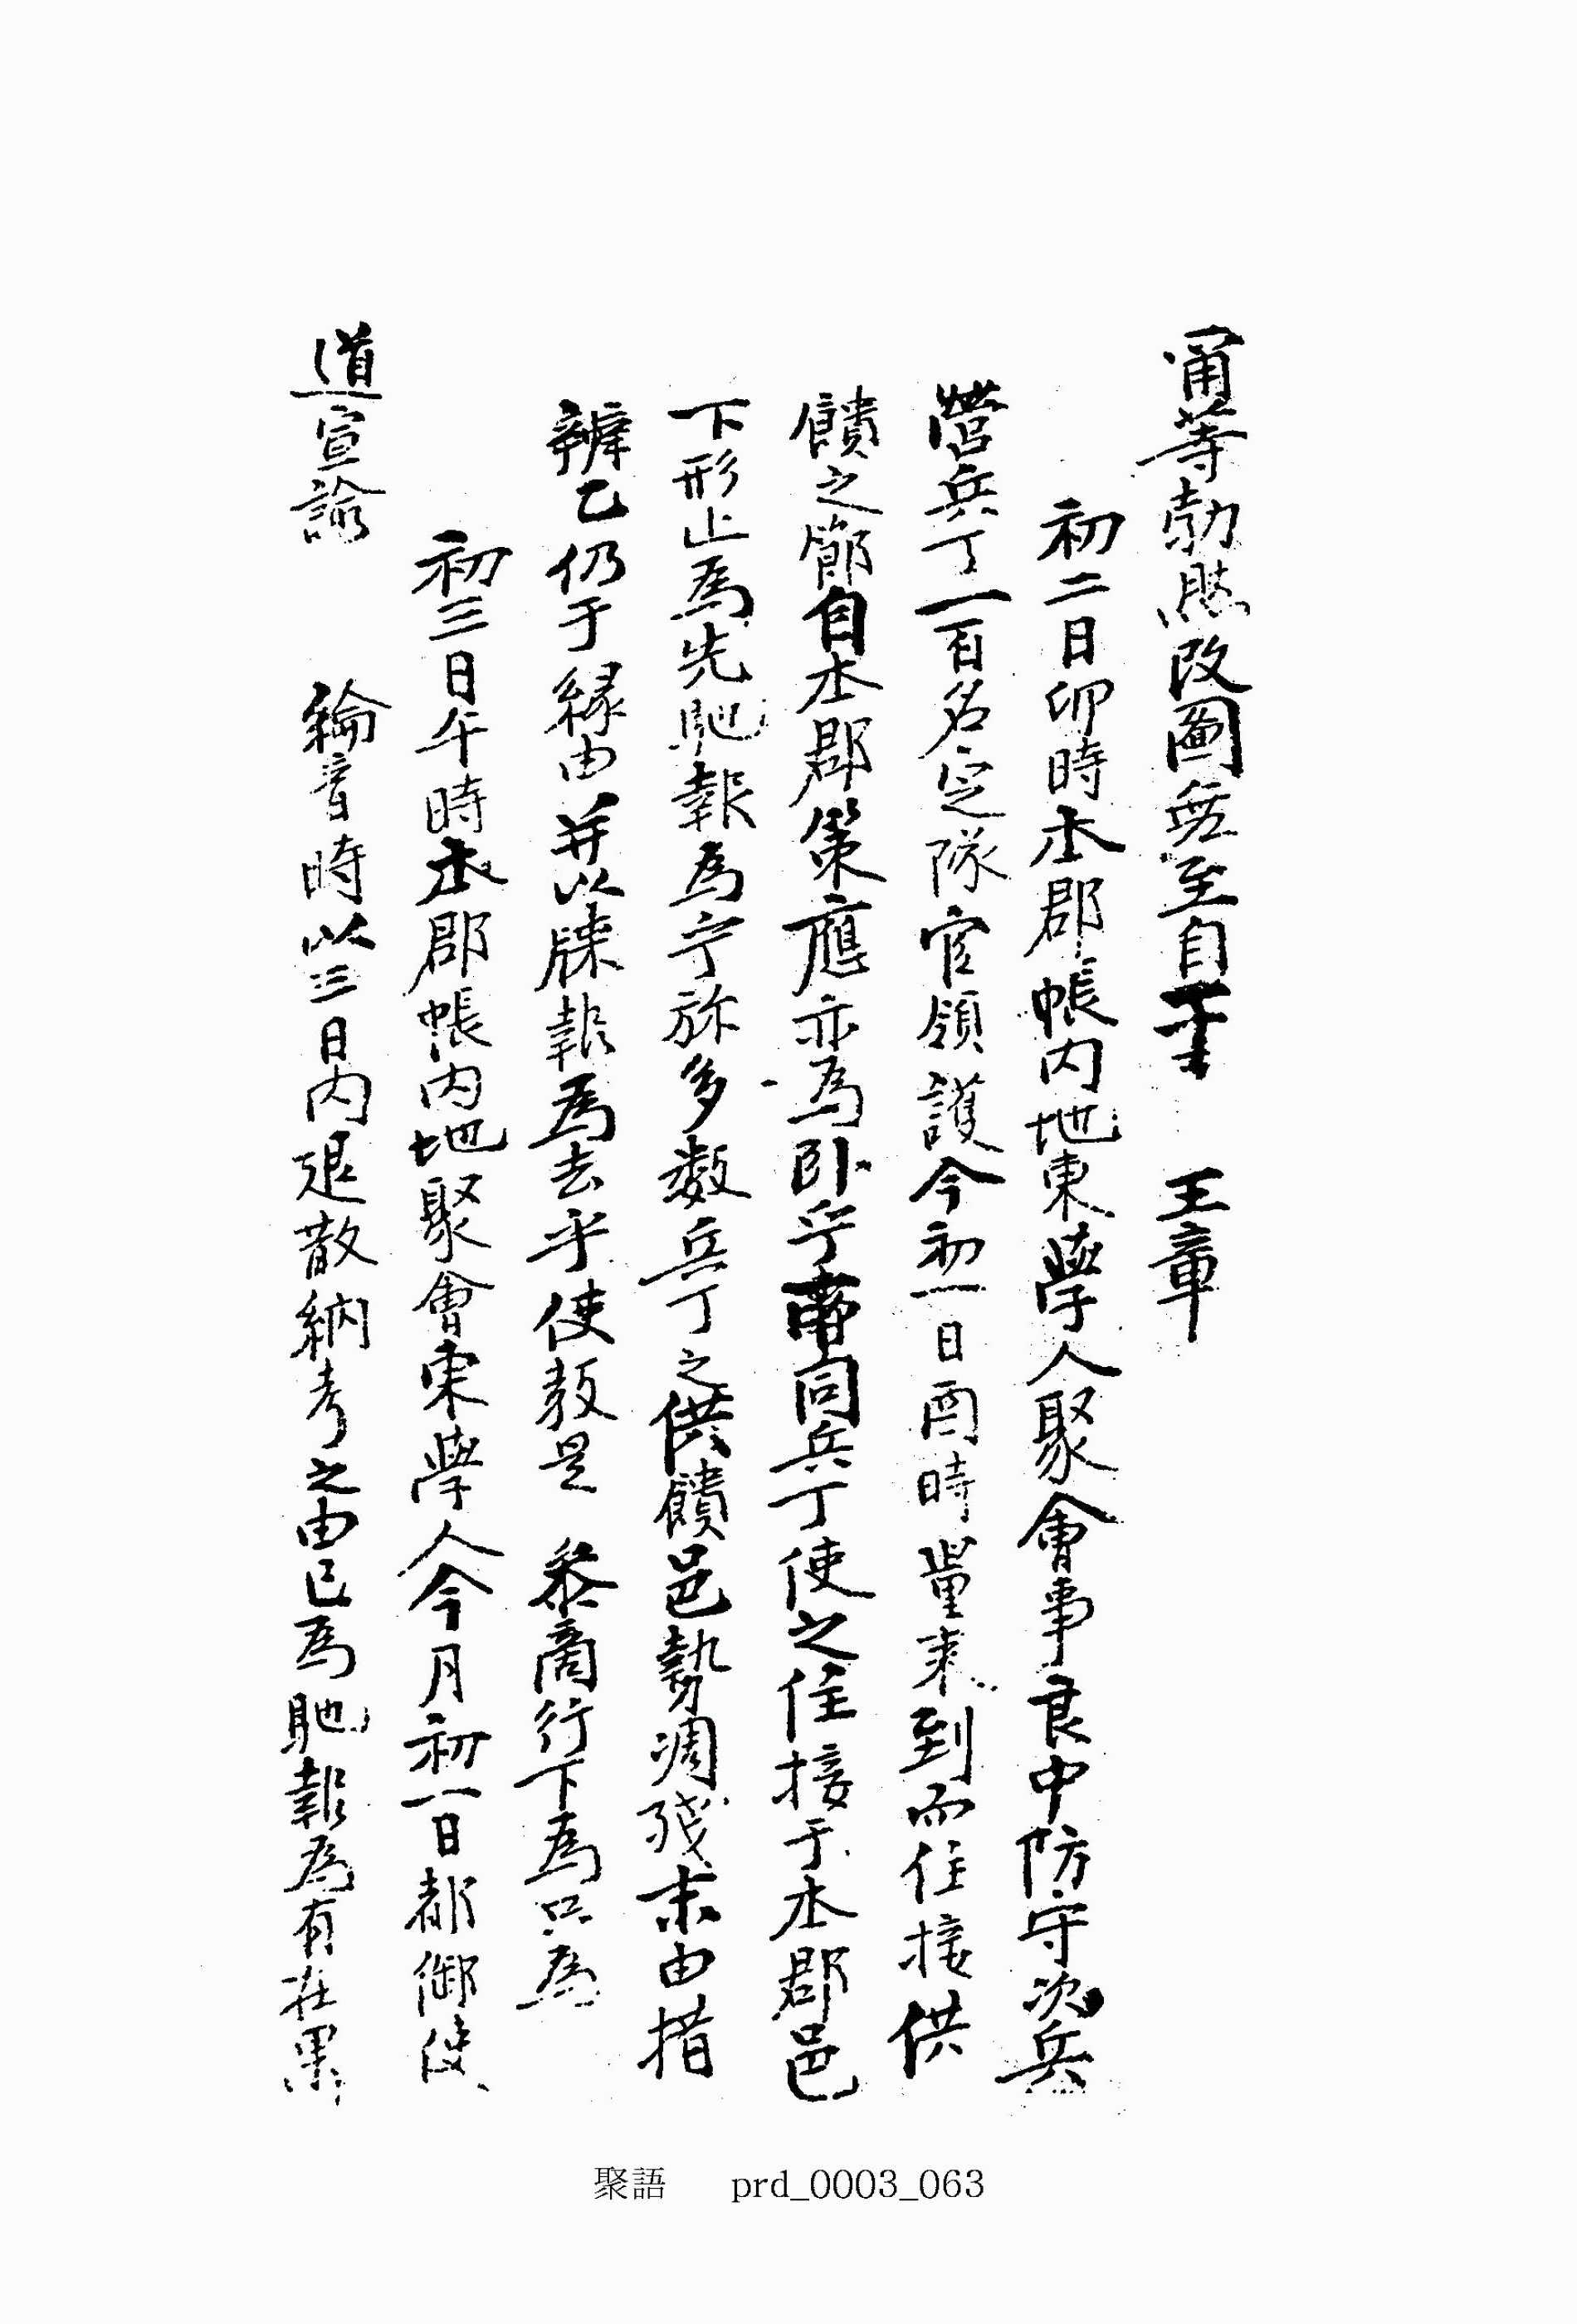 甯等勃然改圖無至自干 王章
初二日卯時本郡帳內地東學人聚會事良中防守次兵
營兵丁一百名定隊官領護今初一日酉時量來到而住接供
饋之節自本郡策應亦爲卧乎所同兵丁使之住接于本郡邑
下形止爲先馳報爲乎旀多數兵丁之供饋邑勢凋殘末由措
辦乙仍于緣由幷以牒報爲去乎使敎是 參商行下爲只爲
初三日午時本郡帳內地聚會東學人今月初一日都御使
道宣諭 綸音時以三日內退散納考之由已爲馳報爲有在果
聚語 prd_0003_063